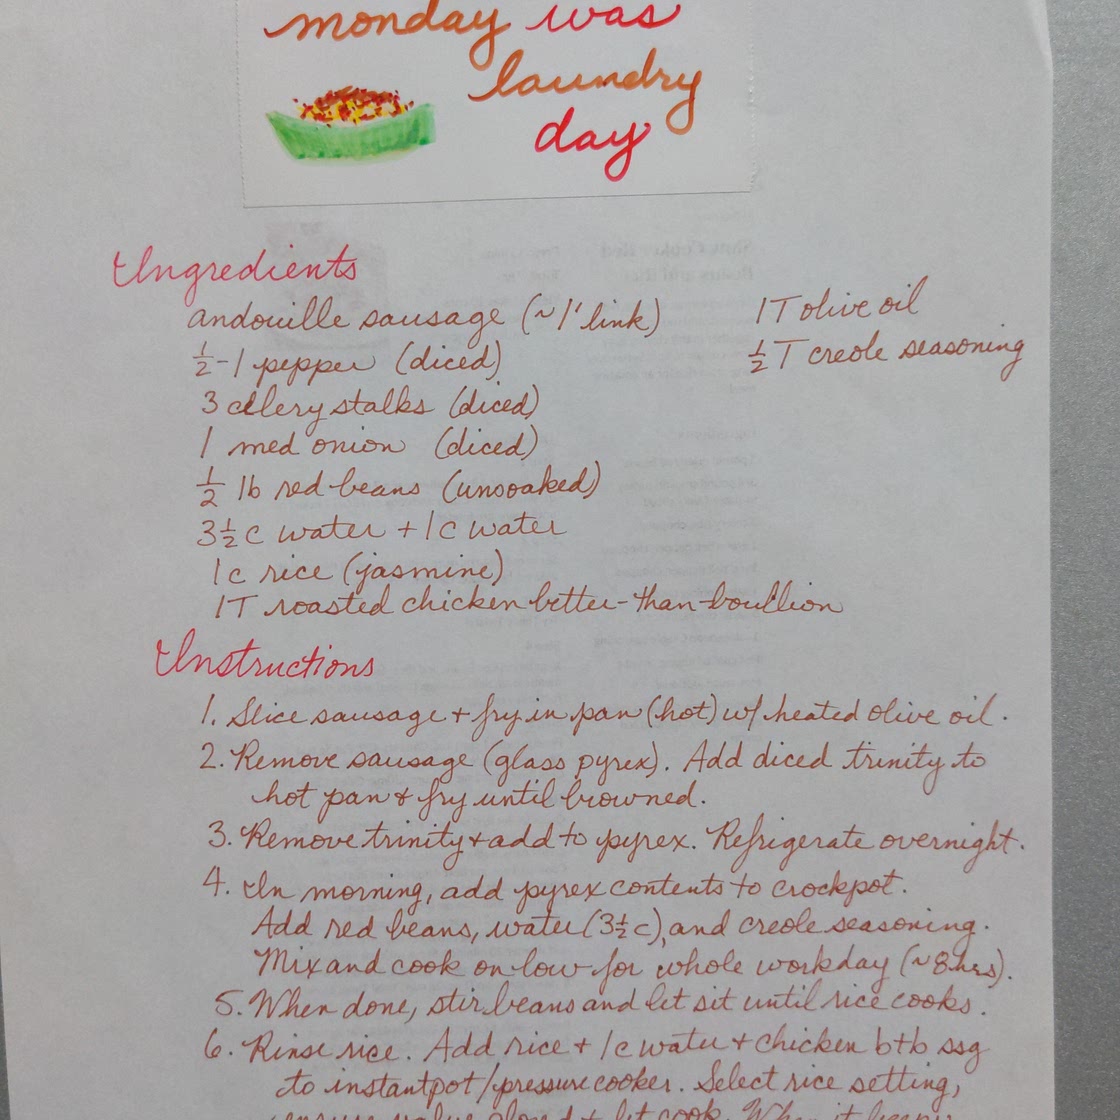 monday was
laundry
day
Ingredients
andouille sausage (~1' link)
1T olive oil
½-1 pepper (diced)
½ T creole seasoning
3 celery stalks (diced)
1 med onion (diced)
½ lb red beans (unsoaked)
3½ c water + 1c water
1c rice (jasmine)
1T roasted chicken better-than-boullion
Instructions
1. Slice sausage + fry in pan (hot) w/ heated olive oil.
2. Remove sausage (glass pyrex). Add diced trinity to
hot pan + fry until browned.
3. Remove trinity + add to pyrex. Refrigerate overnight.
4. In morning, add pyrex contents to crockpot.
Add red beans, water (3½ c), and creole seasoning.
Mix and cook on low for whole workday (~8hrs).
5. When done, stir beans and let sit until rice cooks.
6. Rinse rice. Add rice + 1c water + chicken btb ssg
to instantpot/pressure cooker. Select rice setting,